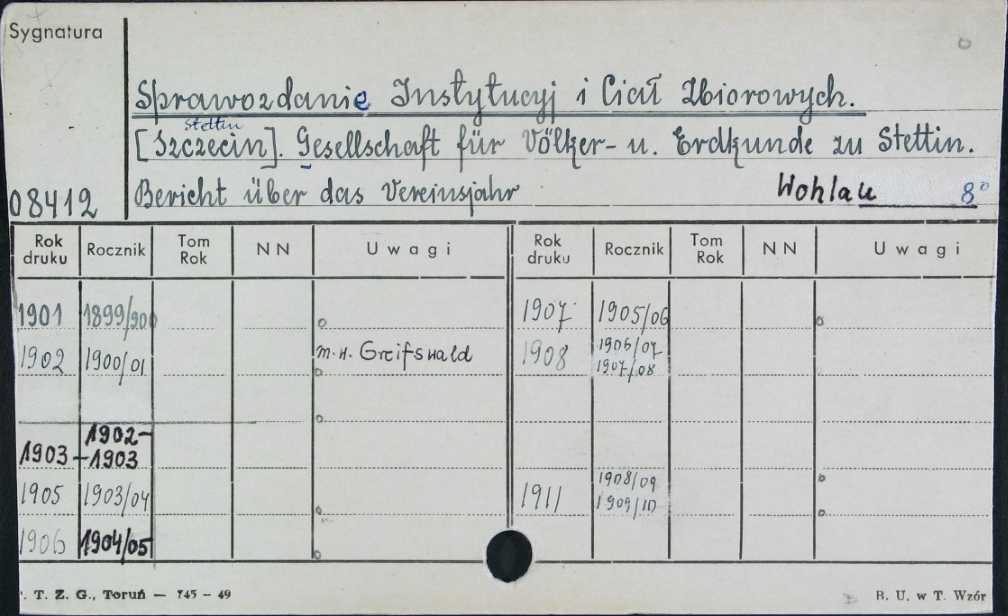 Sygnatura
Sprawozdanie Instytucyj i Ciał Zbiorowych.
Stettin
[Szczecin]. Gesellschaft für Völker- u. Erdkunde zu Stettin.
08412 Bericht über das Vereinsjahr Wohlau 8°
Rok druku Rocznik Tom Rok NN Uwagi Rok druku Rocznik Tom Rok NN Uwagi
1901 1899/900 1907 1905/06
1902 1900/01 m.w. Greifswald 1908 1906/07
1907/08
1902-
1903 -1903
1908/09
1905 1903/04 1911 1909/10
1906 1904/05
T. Z. G., Toruń — 745 - 49 B. U. w T. Wzór